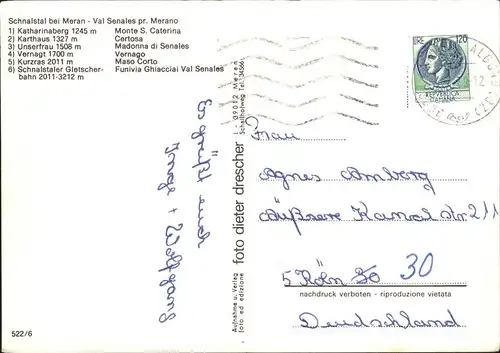 Schnalstal bei Meran - Val Senales pr. Merano
1) Katharinaberg 1245 m Monte S. Caterina
2) Karthaus 1327 m Certosa
3) Unserfrau 1508 m Madonna di Senales
4) Vernagt 1700 m Vernago
5) Kurzras 2011 m Maso Corto
6) Schnalstaler Gletscher- Funivia Ghiacciai Val Senales
bahn 2011-3212 m
Es grüßt euch
Inge + Wolfgang
522/6
Aufnahme u. Verlag
foto ed edizione
foto dieter drescher
I - 39012 Meran
LIRE 120
Frau
Agnes Amberg
Äußere Kanalstr 211
5 Köln 30 30
nachdruck verboten - riproduzione vietata
Deutschland